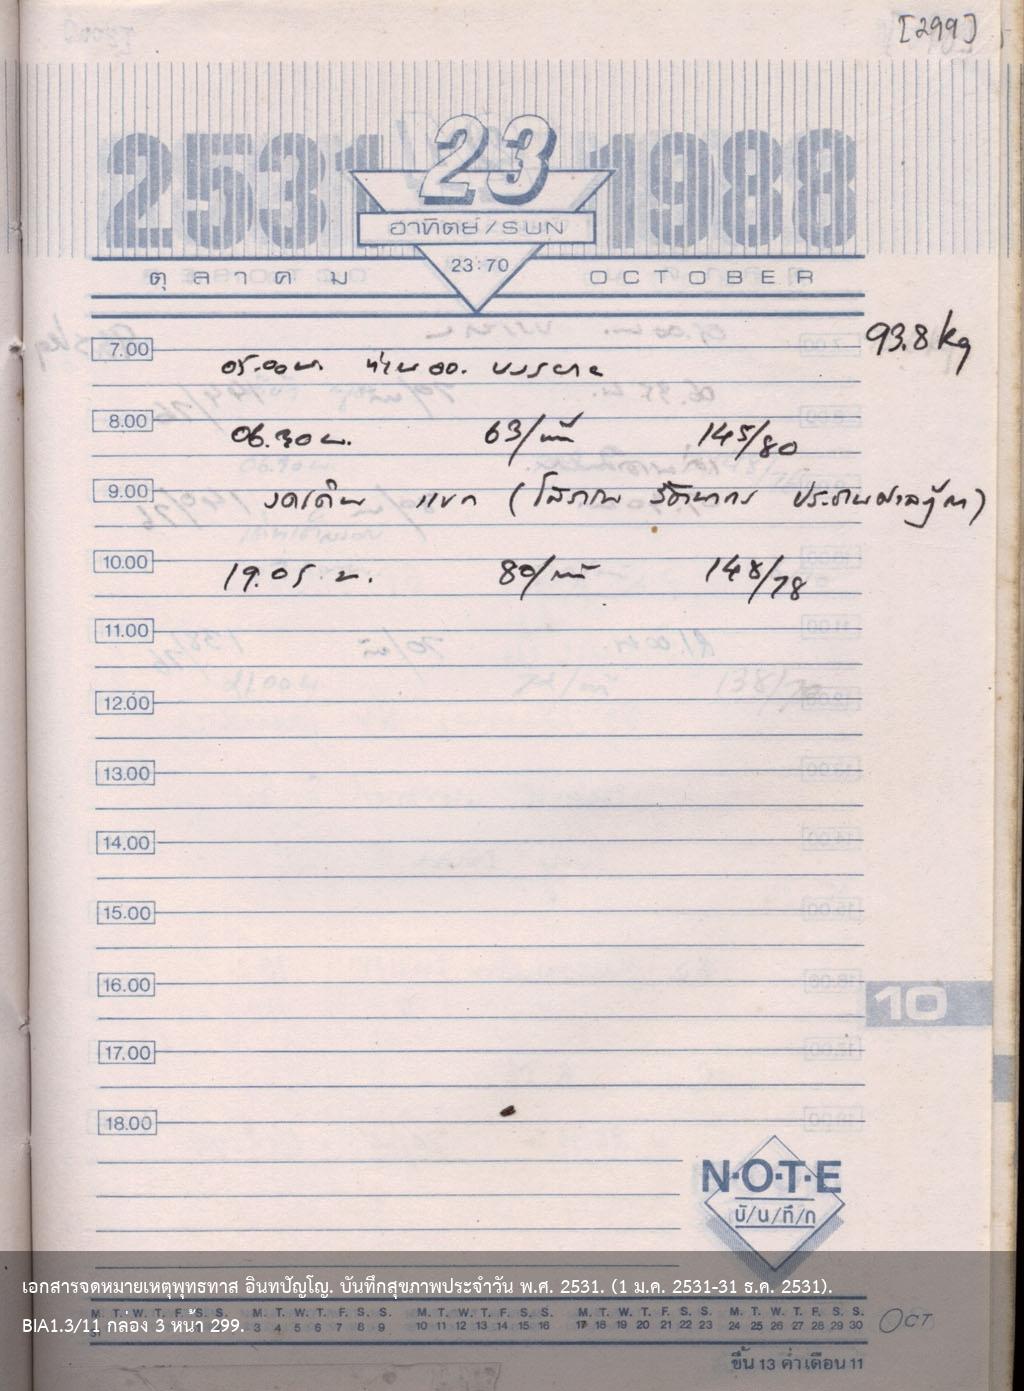 [299]
2531 23 1988
อาทิตย์/SUN
23:70
ตุลาคม OCTOBER
93.8 kg
7.00
05.00 น. ท่าน ออ. บรรยาย
8.00
06.30 น. 63/นาที 145/80
9.00
งดเดิน แขก (โสภณ รัตนากร ประธานศาลฎีกา)
10.00
19.05 น. 80/นาที 148/78
11.00
12.00
13.00
14.00
15.00
16.00
10
17.00
18.00
N·O·T·E
บั/น/ทึ/ก
เอกสารจดหมายเหตุพุทธทาส อินทปัญโญ. บันทึกสุขภาพประจำวัน พ.ศ. 2531. (1 ม.ค. 2531-31 ธ.ค. 2531).
M. T. W. T. F. S. S. M. T. W. T. F. S. S. M. T. W. T. F. S. S. M. T. W. T. F. S. S. M. T. W. T. F. S. S.
3 4 5 6 7 8 9 10 11 12 13 14 15 16 17 18 19 20 21 22 23 24 25 26 27 28 29 30
BIA1.3/11 กล่อง 3 หน้า 299.
OCT
ขึ้น 13 ค่ำ เดือน 11